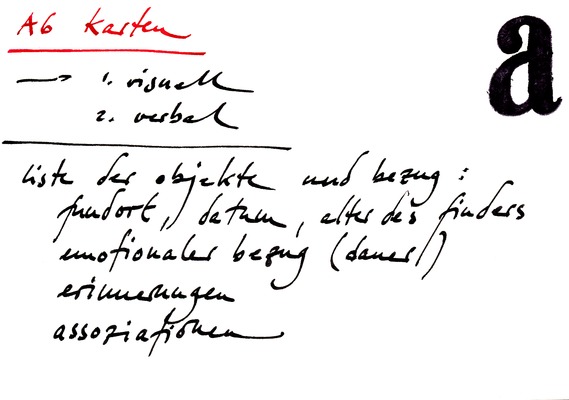 A6 Karten
a
→ 1. visuell
2. verbal
liste der objekte und bezug :
fundort, datum, alter des finders
emotionaler bezug (dauer/)
erinnerungen
assoziationen